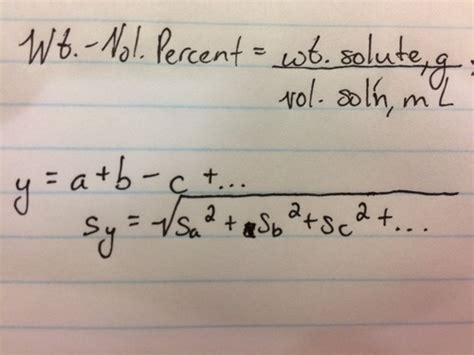 Wt.-Vol. Percent = wt. solute, g.
vol. sol'n, mL
y = a+b-c +...
sy = √sa² + sb² + sc² + ...